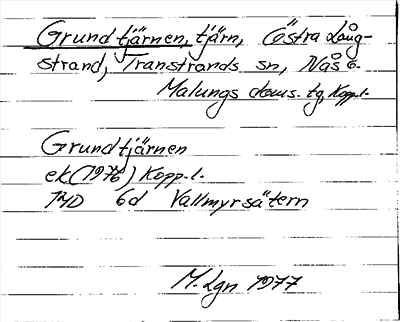 Grundtjärnen, tjärn, Östra Lång-
strand, Transtrands sn, Nås o.
Malungs doms. tg, Kopp.l.
Grundtjärnen
ek(1976) Kopp.l.
14D 6d Vallmyrsätern
M. Lgn 1977